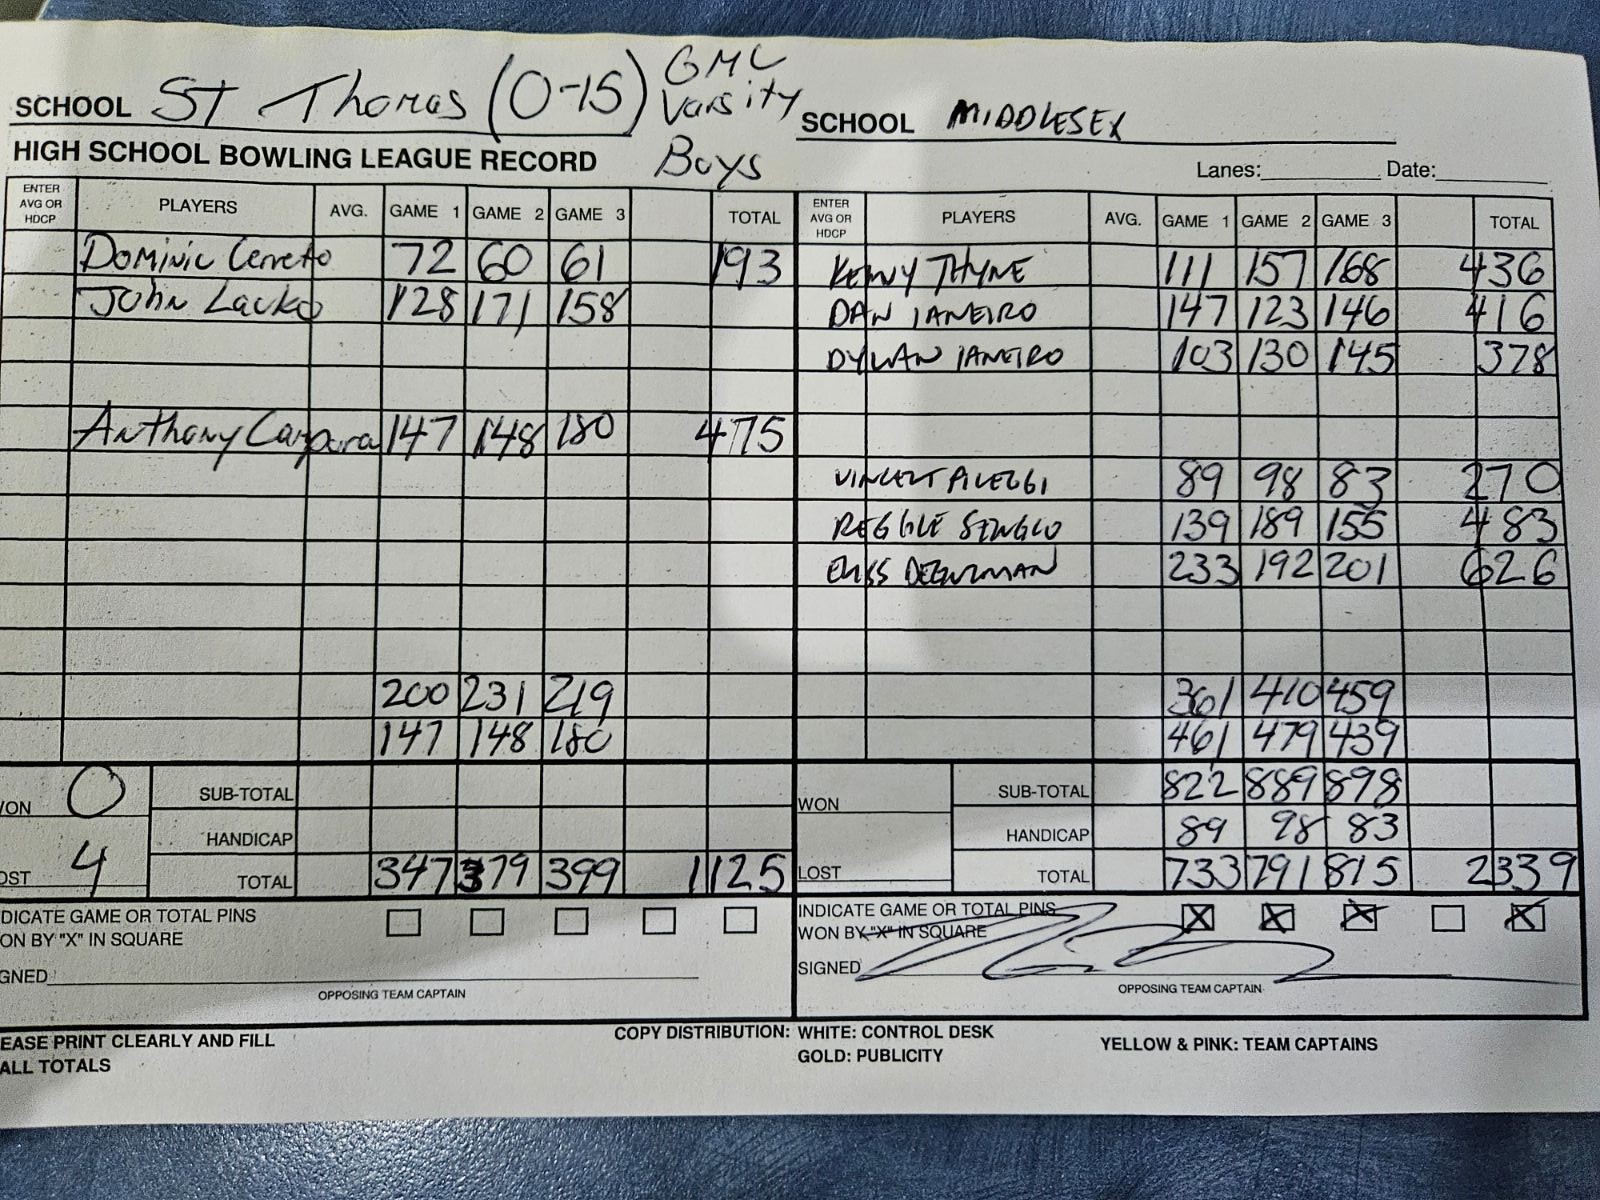 SCHOOL St Thomas (0-15) GMC Varsity Boys
HIGH SCHOOL BOWLING LEAGUE RECORD
ENTER AVG OR HDCP PLAYERS AVG. GAME 1 GAME 2 GAME 3 TOTAL
Dominic Cerreto 72 60 61 193
John Lacko 128 171 158
Anthony 147 148 180 475
200 231 219
147 148 180
WON 0 SUB-TOTAL
HANDICAP
LOST 4 TOTAL 347 379 399 1125
INDICATE GAME OR TOTAL PINS
WON BY "X" IN SQUARE
SIGNED
OPPOSING TEAM CAPTAIN
SCHOOL MIDDLESEX
Lanes: Date:
ENTER AVG OR HDCP PLAYERS AVG. GAME 1 GAME 2 GAME 3 TOTAL
KENNY THYNE 111 157 168 436
DAN IANEIRO 147 123 146 416
DYLAN IANEIRO 103 130 145 378
VINCENT PILEGGI 89 98 83 270
REGGIE 139 189 155 483
DEGUZMAN 233 192 201 626
361 410 459
461 479 439
WON SUB-TOTAL 822 889 898
HANDICAP 89 98 83
LOST TOTAL 733 791 815 2339
INDICATE GAME OR TOTAL PINS X X X X
WON BY "X" IN SQUARE
SIGNED
OPPOSING TEAM CAPTAIN
PLEASE PRINT CLEARLY AND FILL
ALL TOTALS
COPY DISTRIBUTION: WHITE: CONTROL DESK
GOLD: PUBLICITY
YELLOW & PINK: TEAM CAPTAINS